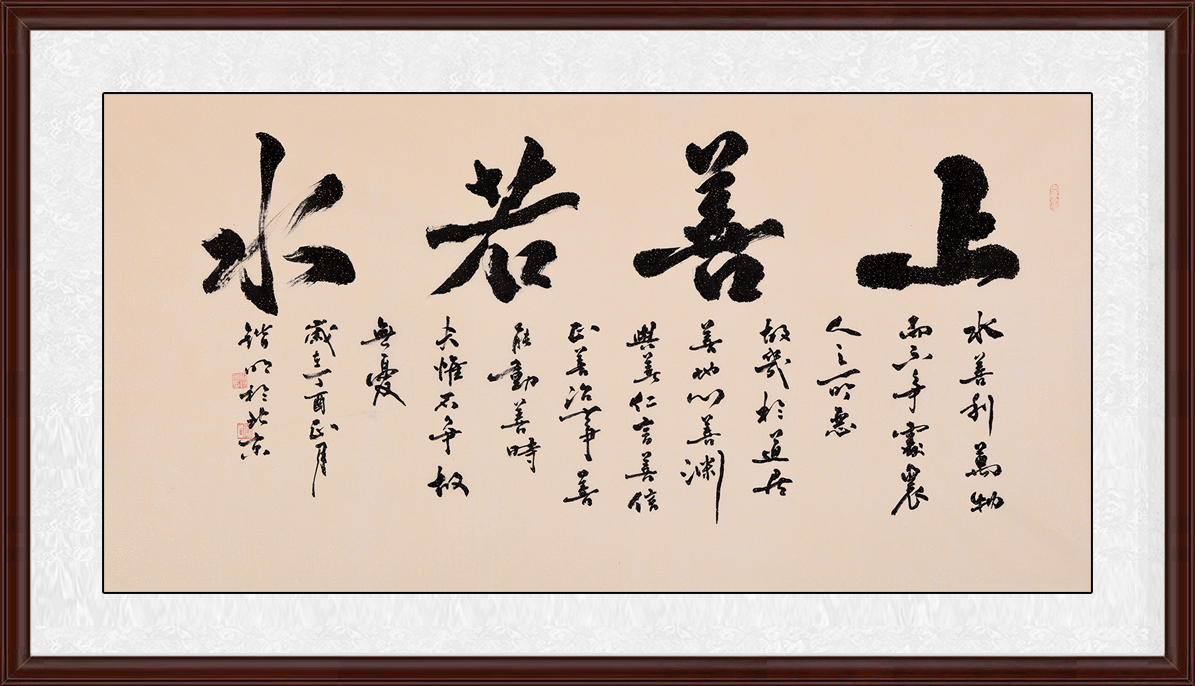 上善若水
水善利萬物
而不爭處眾
人之所惡
故幾於道居
善地心善渊
與善仁言善信
正善治事善
能動善時
夫惟不争故
無憂
歲在丁酉正月
鍇明於北京